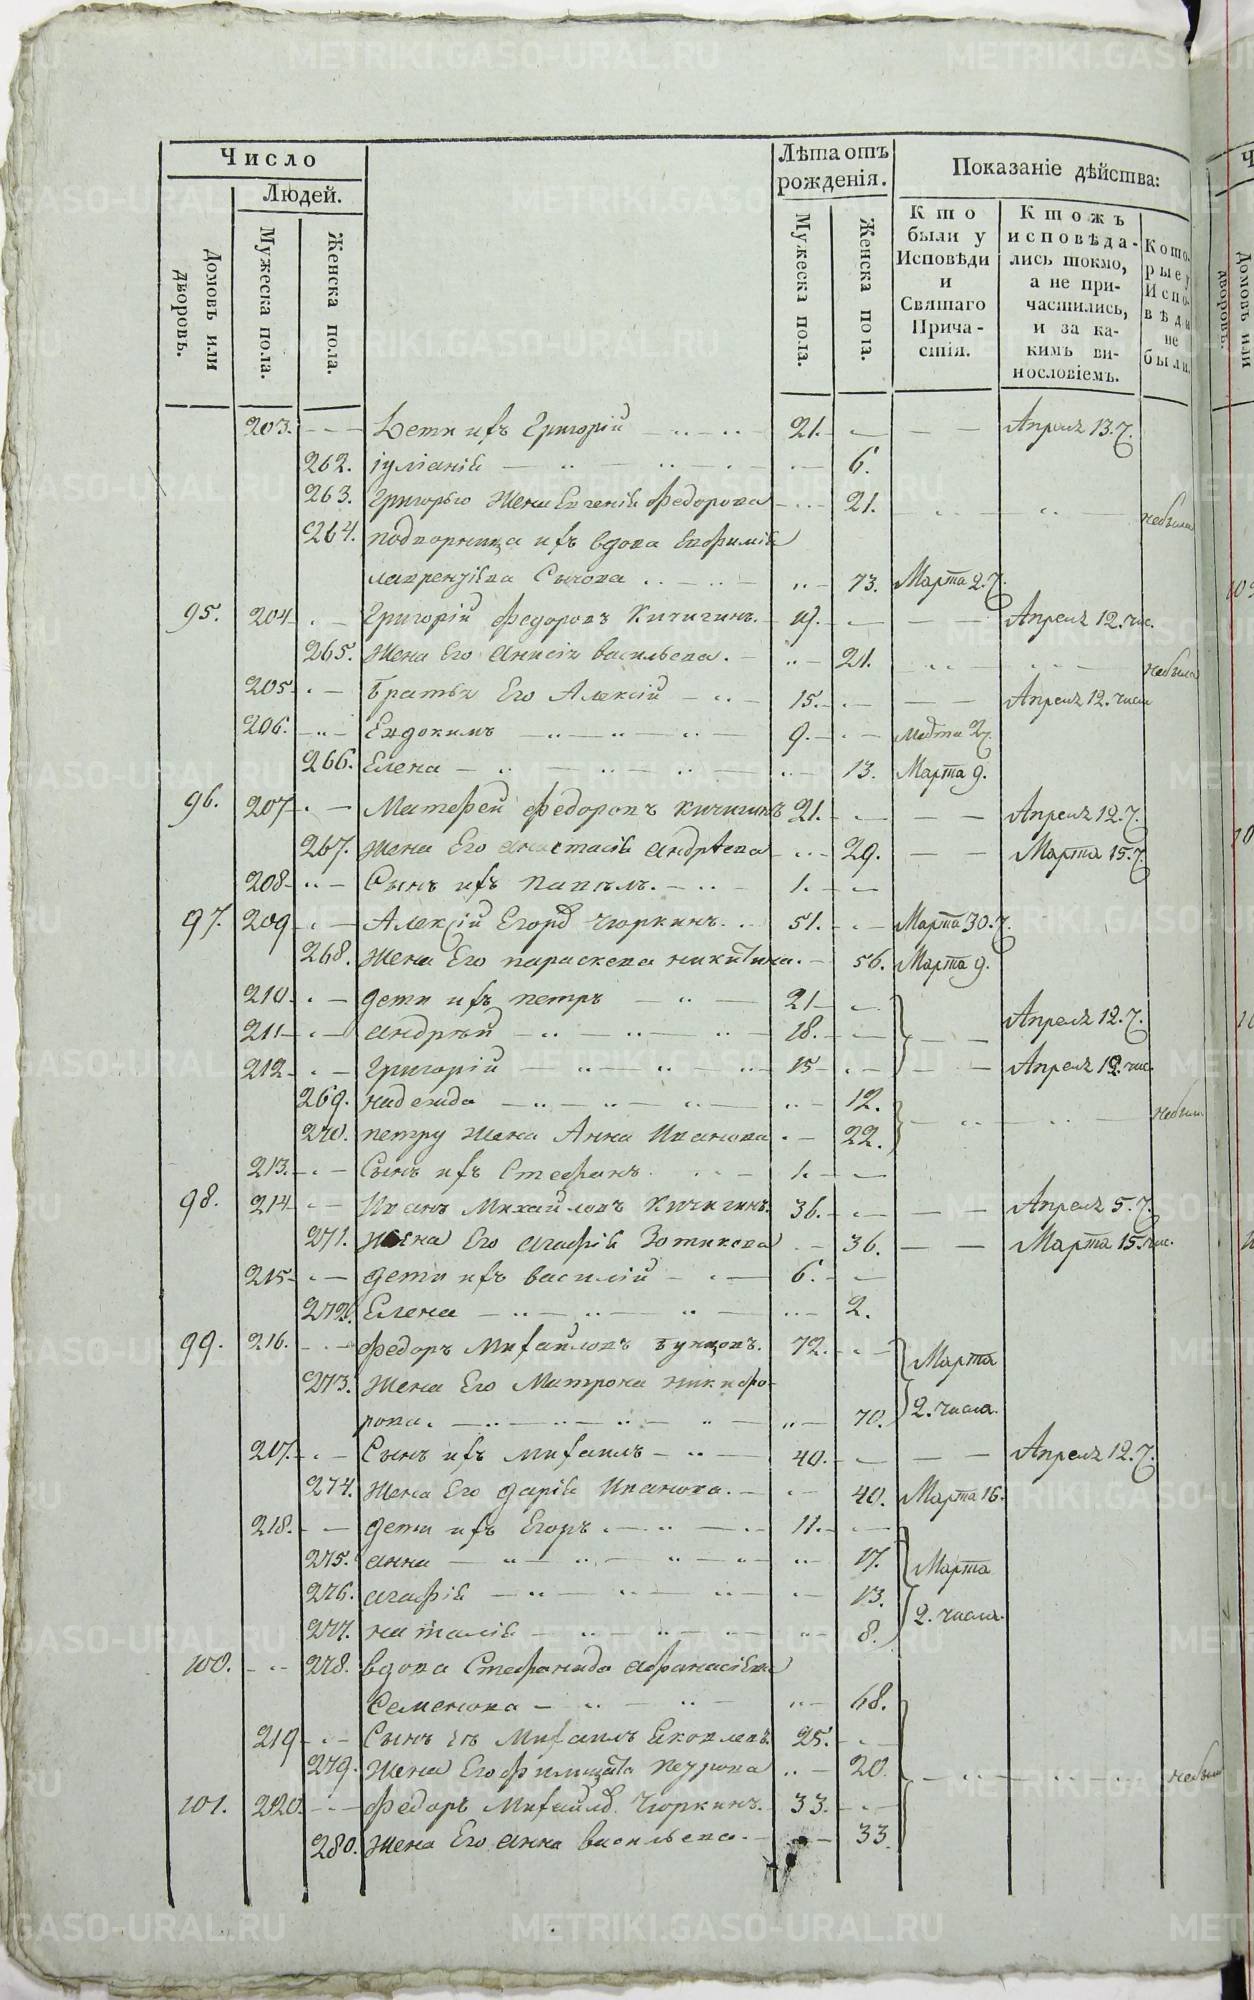 Число
Людей.
Домовъ или дворовъ.
Мужеска пола.
Женска пола.
Лѣта отъ рожденія.
Мужеска пола.
Женска пола.
Показаніе дѣйства:
Кто были у Исповѣди и Святаго Причастія.
Ктожъ исповѣдались токмо, а не причастились, и за какимъ винословіемъ.
Которые у Исповѣди не были.
203. Дети ихъ Григорій 21. Апреля 13.
262. Іуліанія 6.
263. Григорью жена Евгенія Федорова 21. небыла
264. подворница ихъ вдова Евфимія
лаврентіева Сычова 73. Марта 2.
95. 204 Григорій Федоровъ Кичигинъ. 19. Апреля 12. чис.
265. Жена Его Анисія васильева. 21. небыла
205 Братья Его Алексій 15. Апреля 12. числа
206. Евдокимъ 9. Марта
266. Елена 13. Марта 9.
96. 207 Матфей Федоровъ Кичигинъ 21. Апреля 12.
267. Жена Его Анастасія андрѣева 29. Марта 15.
208 Сынъ ихъ павелъ. 1.
97. 209 Алексій Егоров Чюркинъ. 51. Марта 30.
268. Жена Его параскева никитина. 56. Марта 9.
210 дети ихъ петръ 21
211 андрѣй 18. Апреля 12.
212 Григорій 15 Апреля 12. чис.
269. надежда 12.
270. петру жена Анна Иванова 22.
213. Сынъ ихъ Стефанъ 1.
98. 214 Иванъ Михайловъ Кичигинъ. 36. Апреля 5.
271. Жена Его агафія Зотикова 36. Марта 15. чис.
215 дети ихъ василій 6.
272. Елена 2.
99. 216. Федоръ Михайловъ Бунцовъ. 72. Марта
273. Жена Его Матрона никифо-
рова. 70. 2. числа.
217. Сынъ ихъ михаилъ 40. Апреля 12.
274. Жена Его дарія Иванова. 40. Марта 16.
218. дети ихъ Егоръ 11.
275. анна 17. Марта
276. агафія 13.
277. наталія 8. 2. числа.
100. 278. вдова Стефанида афанасіева
Семенова 68.
219 Сынъ Ея Михаилъ Яковлевъ. 25.
279. Жена Его Филицата петрова 20.
101. 220. Федоръ Михайлов. Чюркинъ. 33.
280. Жена Его анна васильева. 33
METRIKI.GASO-URAL.RU